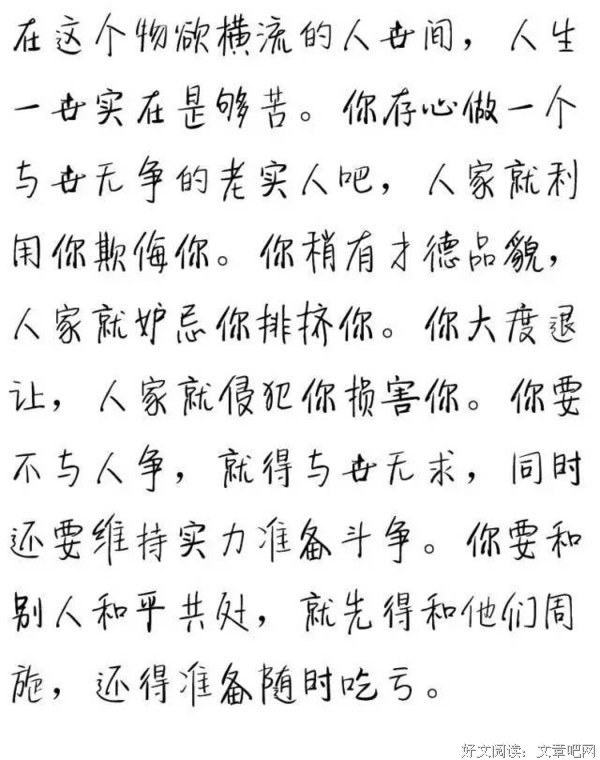 在这个物欲横流的人世间，人生
一世实在是够苦。你存心做一个
与世无争的老实人吧，人家就利
用你欺侮你。你稍有才德品貌，
人家就妒忌你排挤你。你大度退
让，人家就侵犯你损害你。你要
不与人争，就得与世无求，同时
还要维持实力准备斗争。你要和
别人和平共处，就先得和他们周
旋，还得准备随时吃亏。
好文阅读：文章吧网